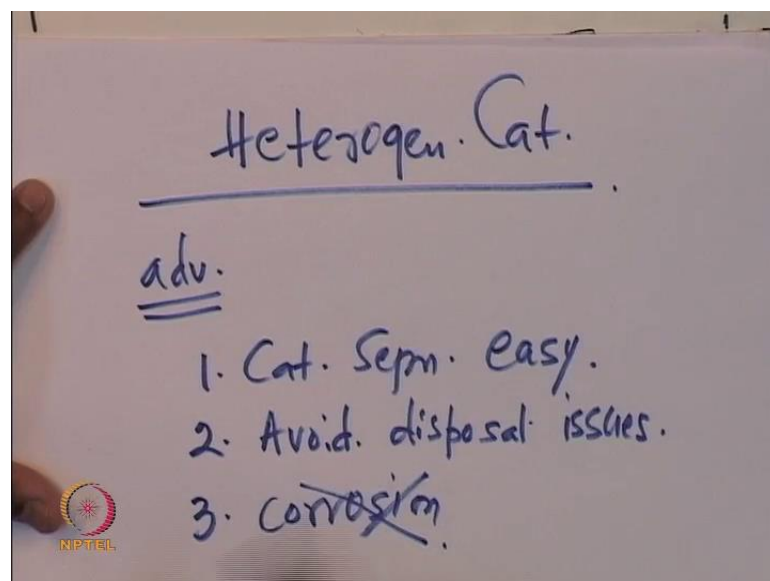 Heterogen. Cat.
adv.
1. Cat. Sepn. easy.
2. Avoid. disposal issues.
3. corrosion
NPTEL